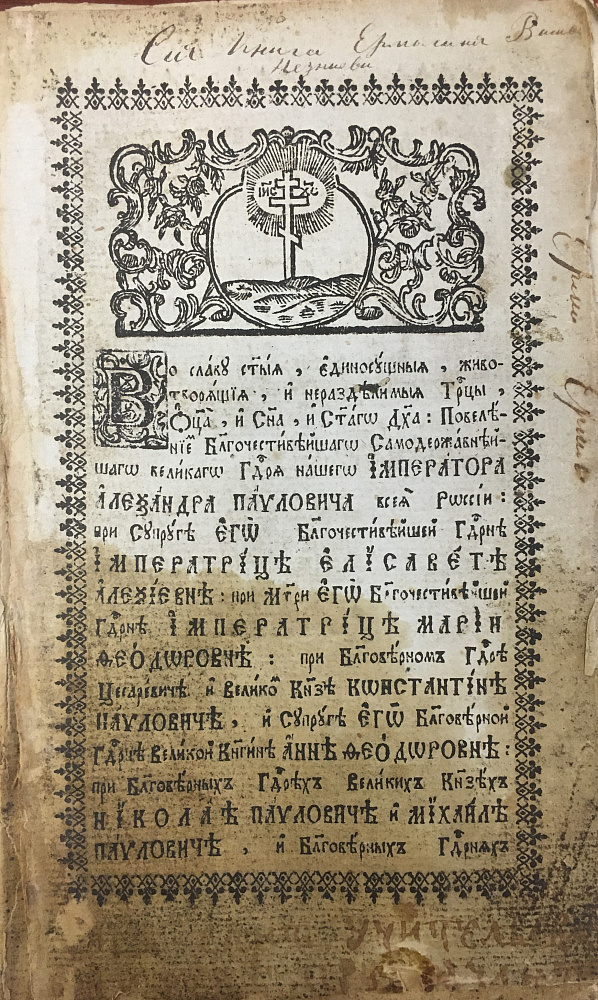 Сія Книга Ермолина
І҃НС ХС
Во славу ст҃ыѧ , є҆диносꙋ́щныѧ , живо-
творѧ́щїѧ , и҆ нераздѣ́лимыѧ Трⷪ҇цы ,
Ѻ҆ц҃а̀ , и҆ Сн҃а , и҆ Ст҃а́гѡ Дх҃а : Повелѣ́-
нїемъ Бл҃гочести́вѣйшагѡ Самодержа́внѣй-
шагѡ вели́кагѡ Гдⷭ҇рѧ на́шегѡ І҆МПЕРА́ТОРА
А҆ЛЕѮА́НДРА ПА́ѴЛОВИЧА всеѧ̀ Рѡссі́и :
при Сꙋпрꙋ́гѣ Є҆ГѠ̀ Бл҃гочести́вѣйшей Гдⷭ҇рнѣ
І҆МПЕРАТРИ́ЦѢ Є҆ЛІСАВЕ́ТѢ
А҆ЛЕѮІ́ЕВНѢ : при Мт҃ри Є҆ГѠ̀ Бл҃гочести́вѣйшей
Гдⷭ҇рнѣ І҆МПЕРАТРИ́ЦѢ МАРІ́И
Ѳ҆ЕО́ДѠРОВНѢ : при Бл҃говѣ́рномъ Гдⷭ҇рѣ
Цесаре́вичѣ и҆ Вели́комъ Кн҃зѣ КѠНСТАНТІ́НѢ
ПА́ѴЛОВИЧѢ , и҆ Сꙋпрꙋ́гѣ Є҆ГѠ̀ Бл҃говѣ́рной
Гдⷭ҇рнѣ Вели́кой Кн҃ги́нѣ А҆́ННѢ Ѳ҆ЕО́ДѠРОВНѢ :
при Бл҃говѣ́рныхъ Гдⷭ҇рѣхъ Вели́кихъ Кн҃зѣхъ
НІКОЛА́Ѣ ПА́ѴЛОВИЧѢ и҆ МІХАИ́ЛѢ
ПА́ѴЛОВИЧѢ , и҆ Бл҃говѣ́рныхъ Гдⷭ҇рнѧхъ